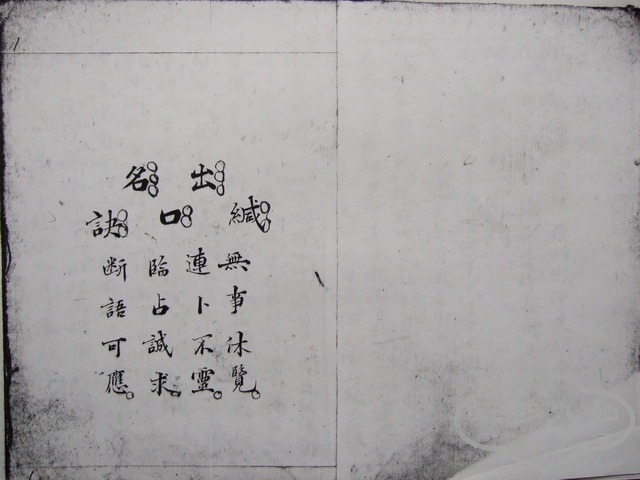 緘無事休覽。
出連卜不靈。
口臨占誠求。
名
訣断語可應。